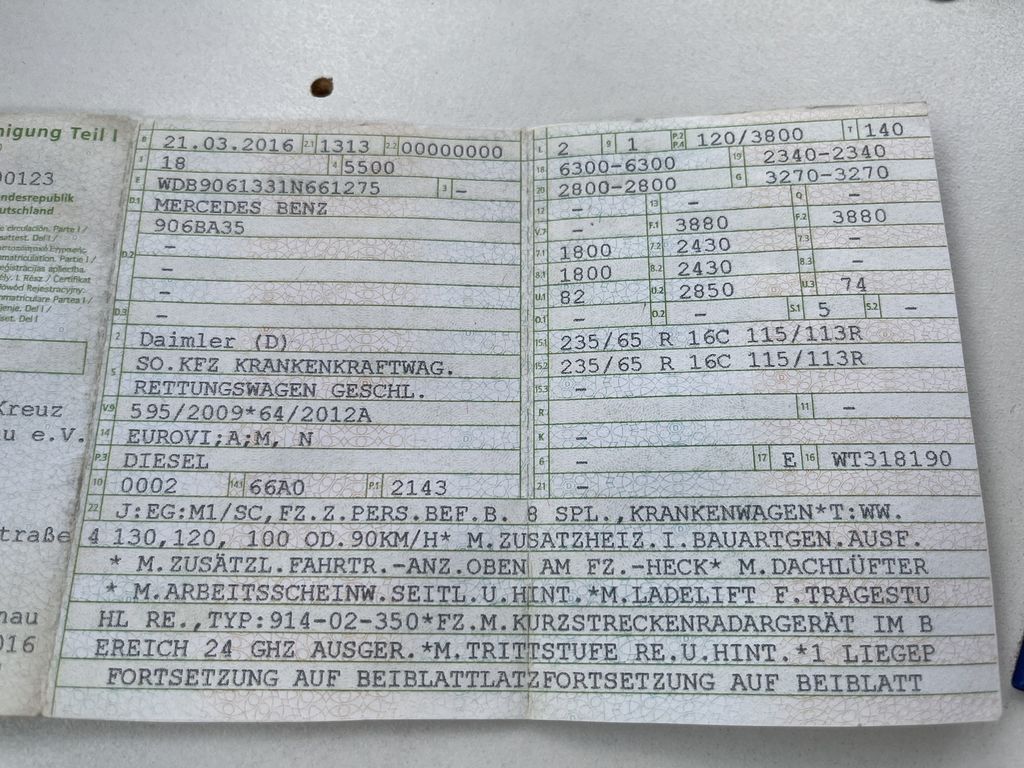 nigung Teil I
00123
ndesrepublik
utschland
Kreuz
u e.V.
traße
nau
016
B 21.03.2016 2.1 1313 2.2 00000000
J 18 4 5500
E WDB9061331N661275 3 -
D.1 MERCEDES BENZ
906BA35
D.2 -
-
-
D.3
2 Daimler (D)
5 SO.KFZ KRANKENKRAFTWAG.
RETTUNGSWAGEN GESCHL.
V.9 595/2009*64/2012A
14 EUROVI;A;M, N
P.3 DIESEL
10 0002 14.1 66A0 P.1 2143
L 2 9 1 P.2 P.4 120/3800 T 140
18 6300-6300 19 2340-2340
20 2800-2800 G 3270-3270
12 - 13 - Q -
V.7 - F.1 3880 F.2 3880
7.1 1800 7.2 2430 7.3 -
8.1 1800 8.2 2430 8.3 -
U.1 82 U.2 2850 U.3 74
O.1 - O.2 - S.1 5 S.2 -
15.1 235/65 R 16C 115/113R
15.2 235/65 R 16C 115/113R
15.3 -
R 11 -
K -
6 - 17 E 16 WT318190
21 -
22 J:EG:M1/SC,FZ.Z.PERS.BEF.B. 8 SPL.,KRANKENWAGEN*T:WW.
4 130,120, 100 OD.90KM/H* M.ZUSATZHEIZ.I.BAUARTGEN.AUSF.
* M.ZUSÄTZL.FAHRTR.-ANZ.OBEN AM FZ.-HECK* M.DACHLÜFTER
* M.ARBEITSSCHEINW.SEITL.U.HINT.*M.LADELIFT F.TRAGESTU
HL RE.,TYP:914-02-350*FZ.M.KURZSTRECKENRADARGERÄT IM B
EREICH 24 GHZ AUSGER.*M.TRITTSTUFE RE.U.HINT.*1 LIEGEP
FORTSETZUNG AUF BEIBLATTLATZFORTSETZUNG AUF BEIBLATT